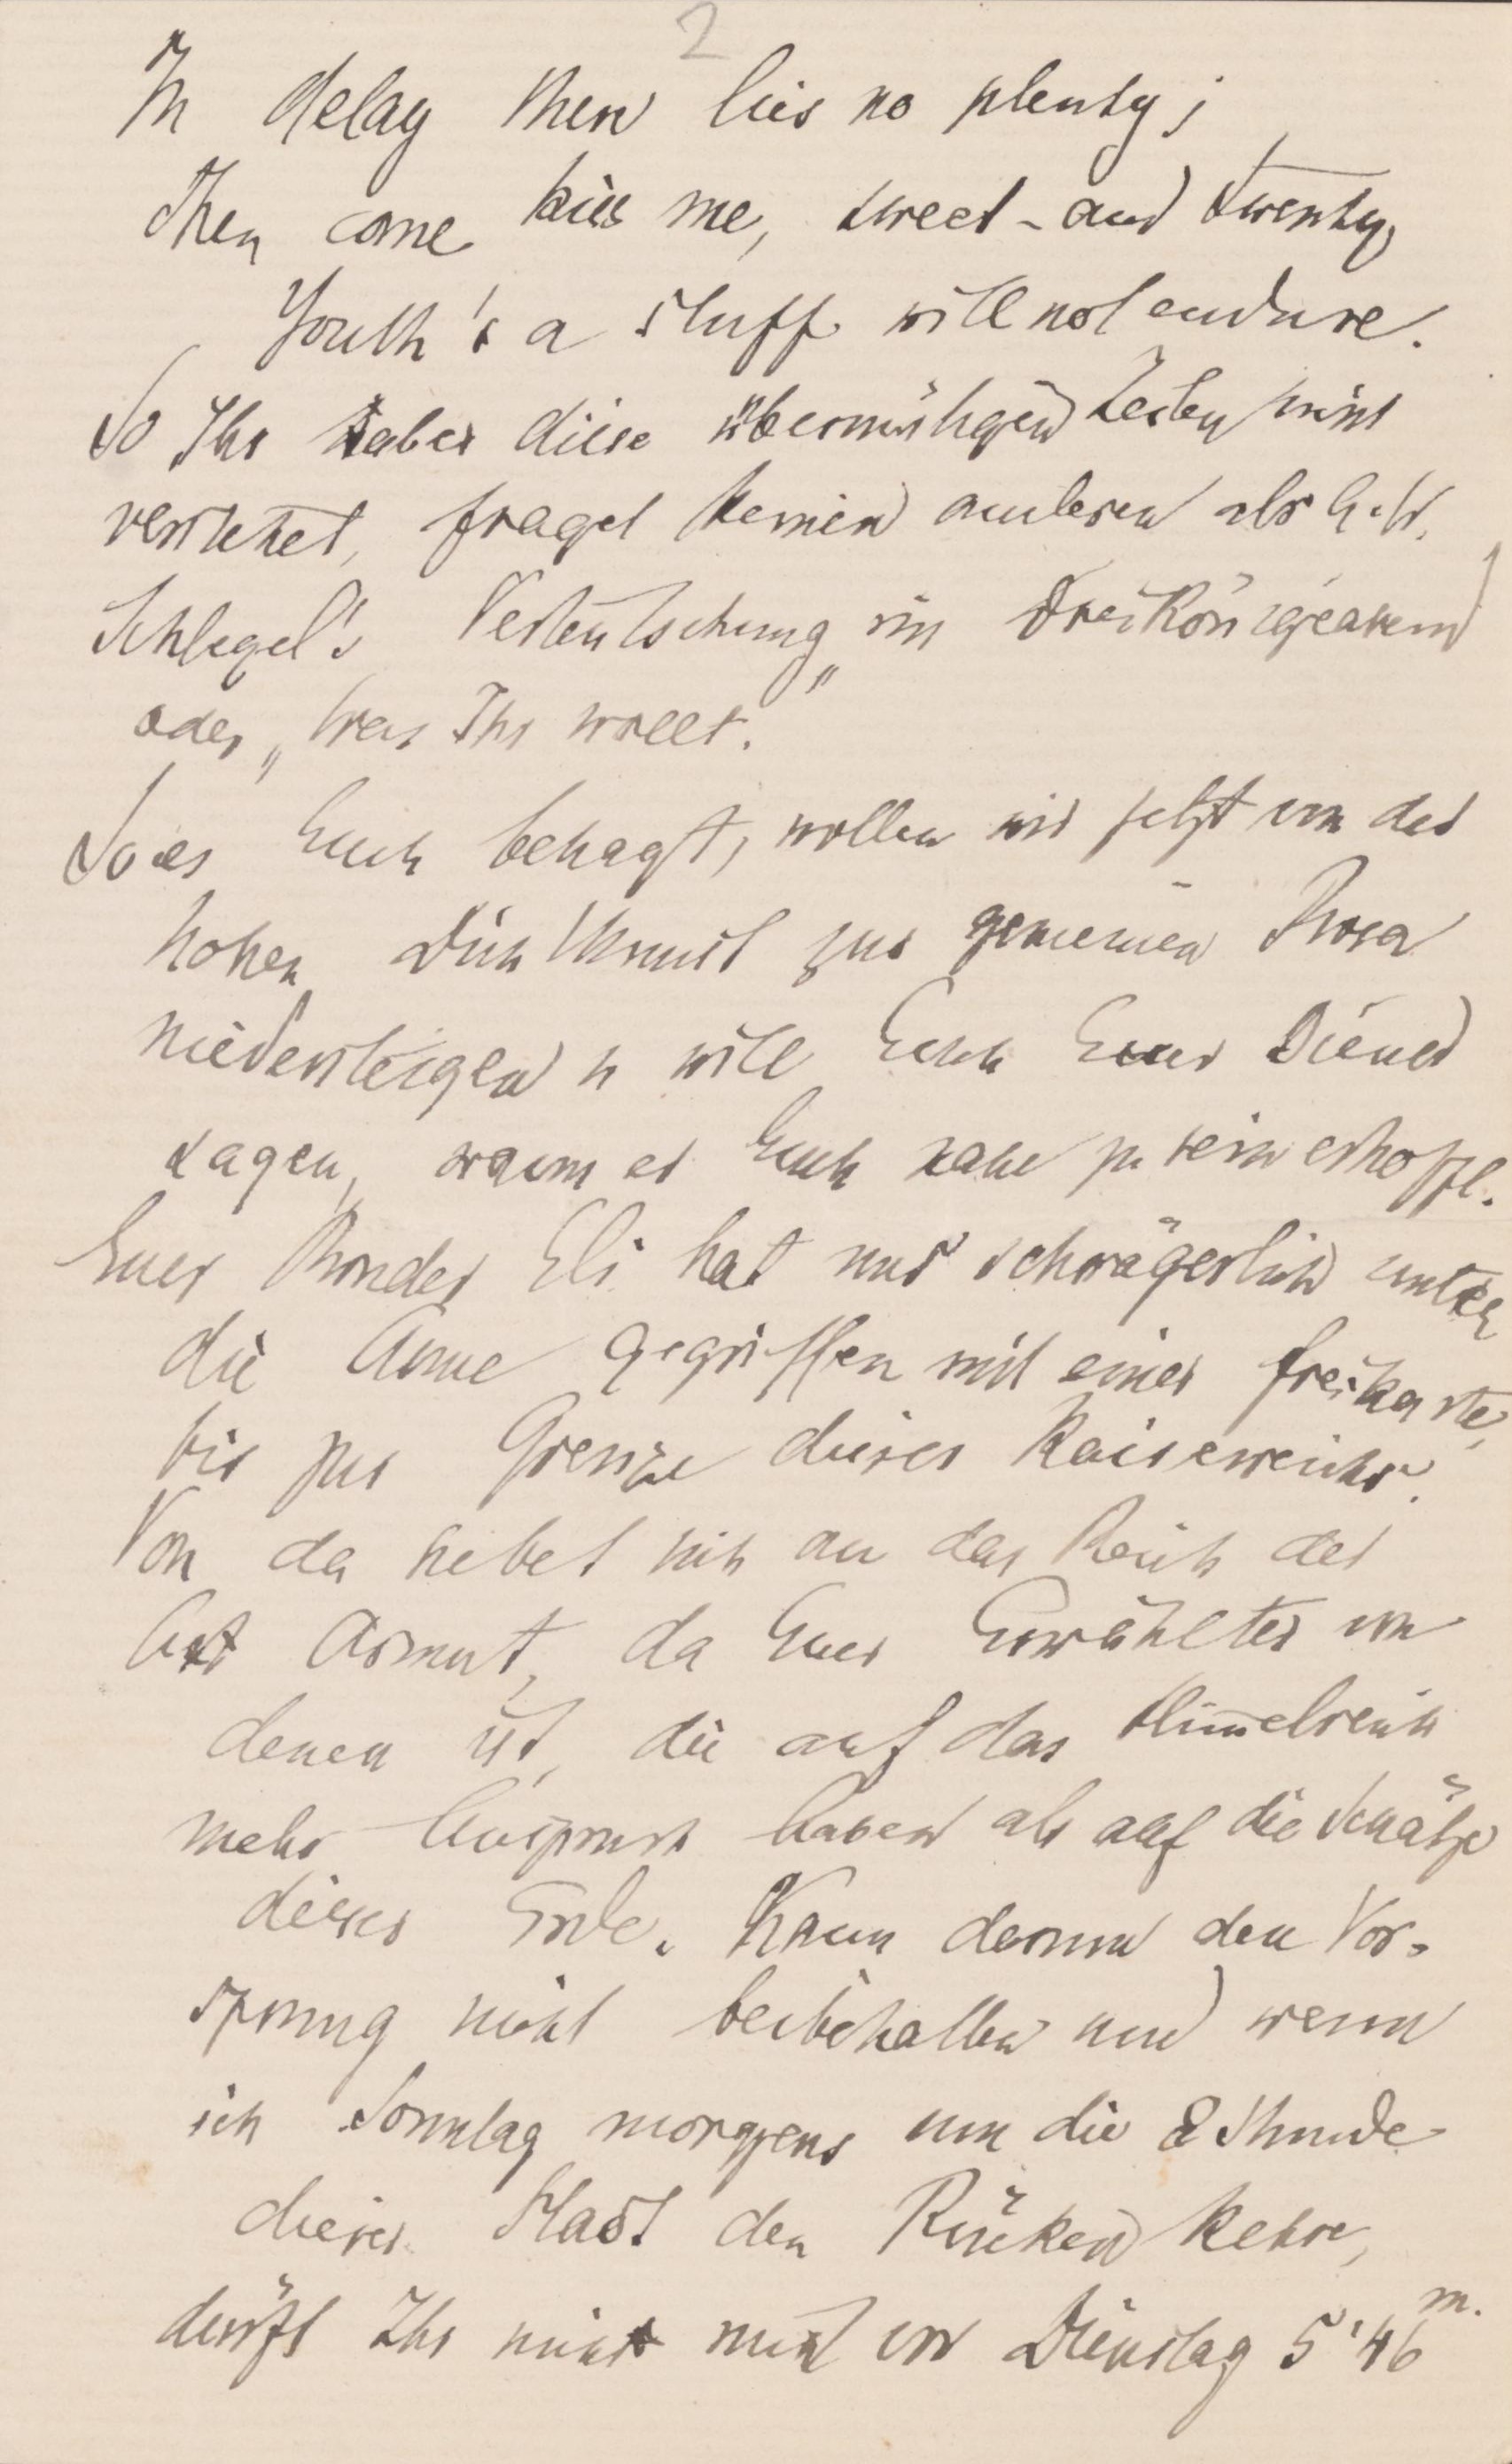 2
In delay then lies no plenty;
Then come kiss me, sweet-and twenty,
Youth's a stuff will not endure.
So Ihr aber diese übermüthigen Zeilen nicht
verstehet, fraget keinen anderen als A. W.
Schlegel's Verdeutschung im „Dreikönigsabend"
oder „Was Ihr wollt".
So es Euch behagt, wollen wir jetzt von der
hohen Dichtkunst zur gemeinen Prosa
niedersteigen u will Euch Euer Diener
sagen, wann er Euch nahe zu sein erhofft.
Euer Bruder Eli hat mir schwägerlich unter
die Arme gegriffen mit einer Freikarte,
bis zur Grenze dieses Kaiserreichs.
Von da hebet sich an das Reich der
Armut, da Euer Erwählter von
denen ist, die auf das Him̅elreich
mehr Anspruch haben als auf die Schätze
dieser Erde. Kann darum den Vor-
sprung nicht beibehalten und wenn
ich Sonntag morgens um die 8 Stunde
dieser Stadt den Rücken kehre,
dürft Ihr mich nicht vor Dienstag 5'46 m.